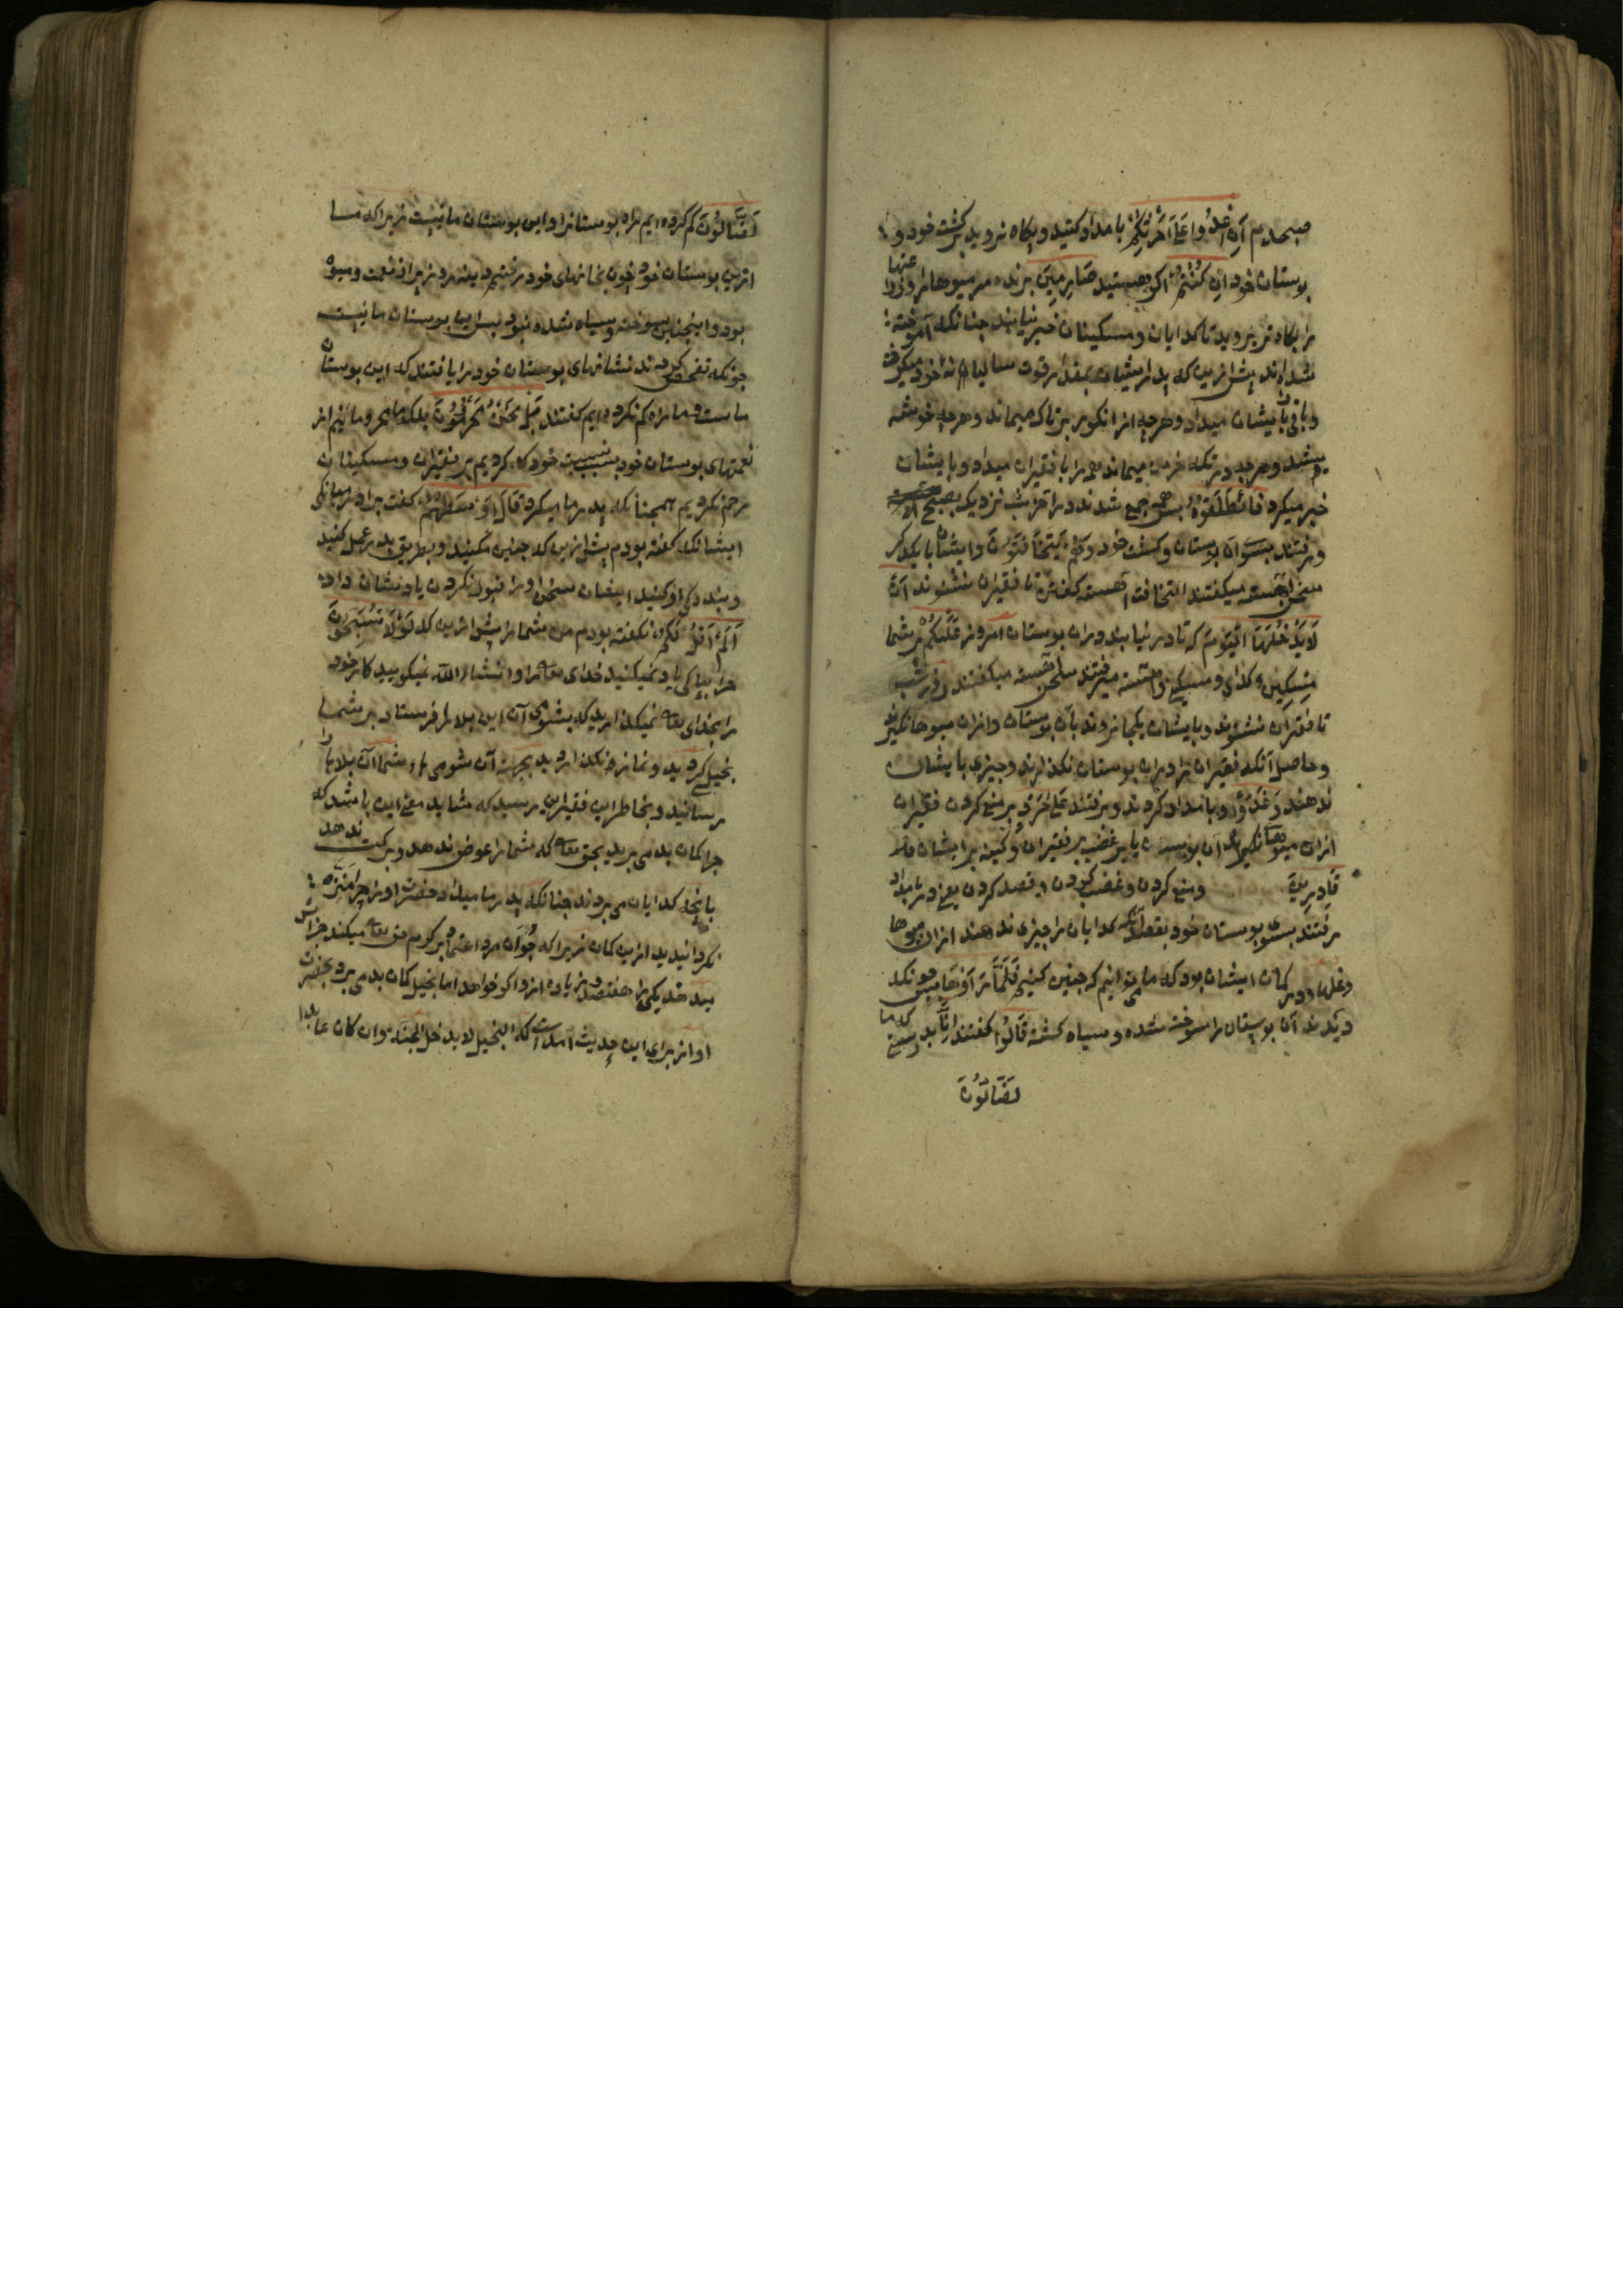 صبحدم آن اغدوا علی حرثکم بامداد کنید و پکاه بروید بر کشت خود و
بوستان خود ان کنتم اکر هستید صارمین برنده مر میوها را و غلها
را پکاه تر بروید تا کدایان و مسکینان خبر نیابند چنانکه آموخته
شده اند پیش ازین که پدر ایشان بمقدار قوت سالیانه خود میکرفت
و باقی با یشان میداد و هرچه از انکور بر تاک میماند و هرچه خوشه
و هرچه در تکه خرمن میماند همه را با فقیران میداد و با یشان
خبر میکرد فانطلقوا پس همه جمع شدند در آخر شب نزدیک بصبح
و رفتند بسوی آن بوستان و کشت خود وهم یتخافتون و ایشان با یکدکر
سخن آهسته میکفتند التخافت آهسته کفتن تا فقیران نشنوند ان
لا یدخلنها الیوم که تا در نیایند دران بوستان امروز علیکم بر شما
مسکین کدای و مسکینی و آهسته میرفتند سخن آهسته میکفتند در شب
تا فقیران نشنوند و با یشان یکجا نروند بآن بوستان و ازان میوها نکیرند
و حاصل آنکه فقیران را دران بوستان نکذارند و چیزی با یشان
ندهند وغدوا و بامداد کردند و رفتند علی حرد بر منع کردن فقیران
ازان میوها نکیرند آن بوستان یا بر غضب بر فقیران و کینه بر ایشان
قادرین و منع کردن و غضب کردن و قصد کردن یعنی در بامداد
رفتند بسوی بوستان خود بقصد آنکه کدایان را چیزی ندهند ازان میوها
و غلها و در کمان ایشان بود که ما می توانیم که چنین کنیم فلما راوها پس چونکه
دیدند آن بوستان را سوخته شده و سیاه کشته قالوا کفتند انا بدرستی که ما
لضالون
لضالون کم کرده ایم راه بوستان را و این بوستان ما نیست زیرا که ما
ازین بوستان خود چون بخانهای خود رفتیم دینه روز پر از نعمت و میوه
بود و اینچنین سوخته و سیاه شده نبود پس این بوستان ما نیست
چونکه تفحص کردند نشانهای بوستان خود را یافتند که این بوستان
ماست و ما راه کم نکرده ایم کفتند بل نحن محرومون بلکه ما محرومانیم از
نعمتهای بوستان خود بسبب نیت خود که کردیم بر فقیران و مسکینان
رحم نکردیم همچنانکه پدر ما میکرد قال اوسطهم کفت برادر میانکی
ایشان که کفته بودم پیش ازین که چنین مکنید و بطریق پدر عمل کنید
و بندکی او کنید ایشان سخن او را قبول نکردن یاد نشان داد
الم اقل لکم نکفته بودم من شما را پیش ازین که لولا تسبحون
چرا بپاکی یاد نمیکنید خدای تعالی را و انشاء الله نمیکویید کار خود
را بخدای تعالی نمیکذارید که بشومی آن این بلا را فرستاد بر شما
بخیلی کردید و نماز نکذاردید بجهة آن شومی شما آن بلا را
رسانید و بخاطر این فقیر این رسید که شاید معنی این باشد که
چرا کمان بد می برید بحق تعالی که شما را عوض ندهد و برکت ندهد
بآنچه کدایان می بردند چنانکه پدر ما میداد و حضرت او را چرا منزه
نکردانیدید ازین کمان زیرا که جوان مرد اعتماد بر کرم حق تعالی میکند جزایش
میدهد یکی را هفتصد و زیاده ازو اکر خواهد اما بخیل کمان بد می برد بحضرت
او از برای این حدیث آمدست که البخیل لا یدخل الجنة و ان کان عابدا